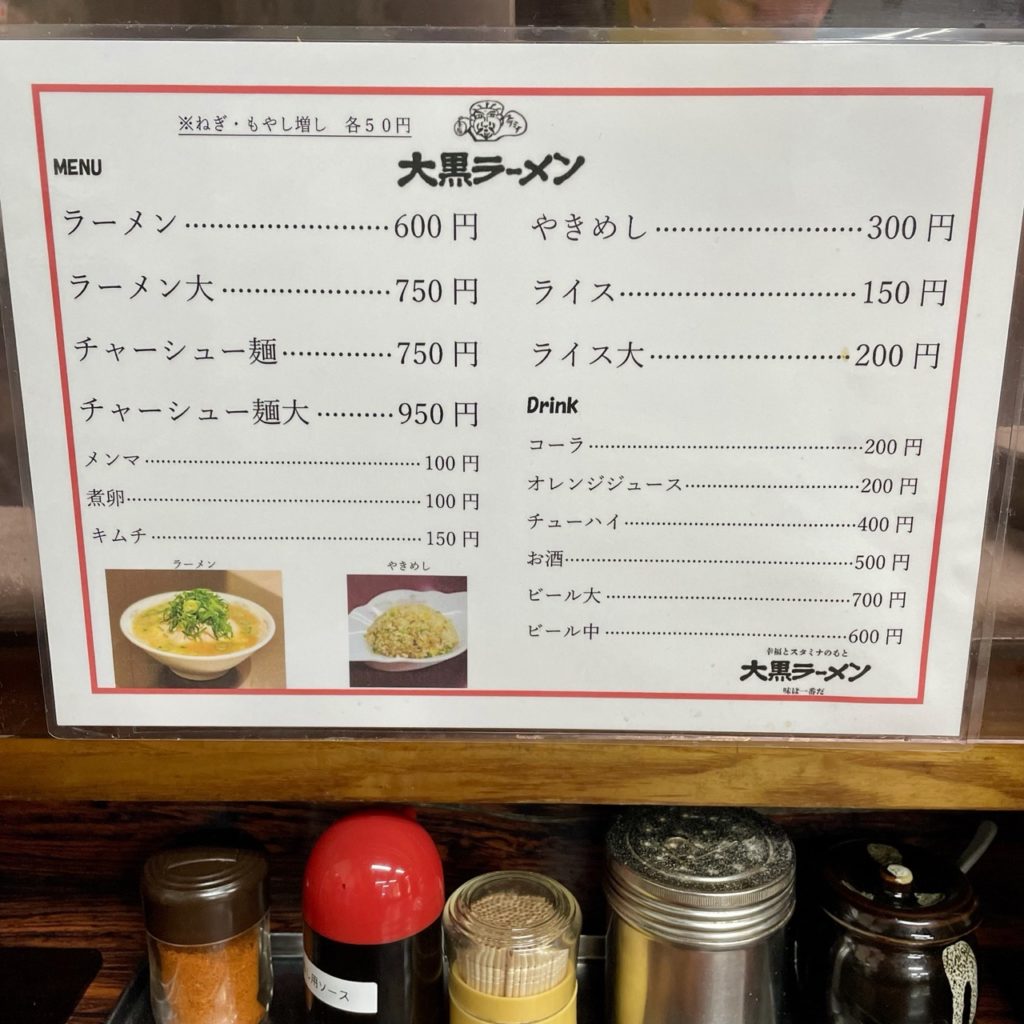 ※ねぎ・もやし増し 各50円
大黒ラーメン
MENU
ラーメン……………………600円
ラーメン大…………………750円
チャーシュー麺…………750円
チャーシュー麺大………950円
メンマ……………………………100円
煮卵………………………………100円
キムチ……………………………150円
ラーメン
やきめし
やきめし……………………300円
ライス………………………150円
ライス大……………………200円
Drink
コーラ……………………………200円
オレンジジュース………………200円
チューハイ………………………400円
お酒………………………………500円
ビール大…………………………700円
ビール中…………………………600円
幸福とスタミナのもと
大黒ラーメン
味は一番だ
用ソース